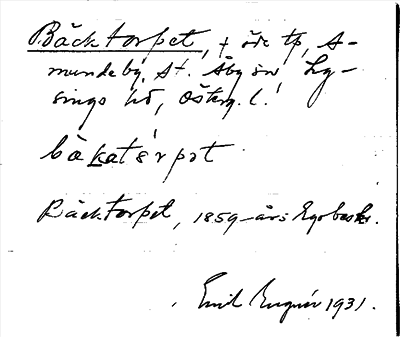 Bäcktorpet, † öde tp, A-
mundeby, St. Åby sn Ly-
sings hd, Österg. l.
bä̀katsǻrpət
Bäcktorpet, 1859-års Egobeskr.
Emil 1931.